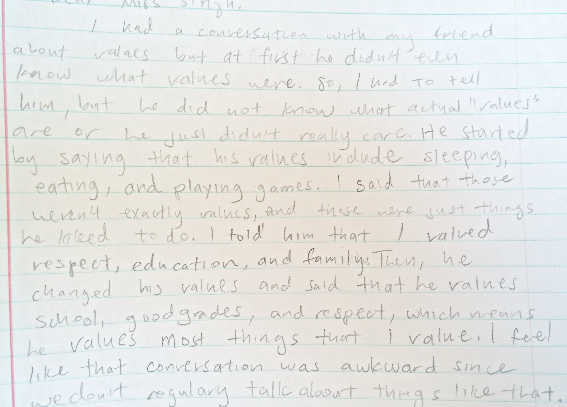 Miss Singh,
I had a conversation with my friend
about values but at first he didn't even
know what values were. So, I had to tell
him, but he did not know what actual "values"
are or he just didn't really care. He started
by saying that his values include sleeping,
eating, and playing games. I said that those
weren't exactly values, and those were just things
he liked to do. I told him that I valued
respect, education, and family. Then, he
changed his values and said that he values
school, good grades, and respect, which means
he values most things that I value. I feel
like that conversation was awkward since
we don't regulary talk about things like that.